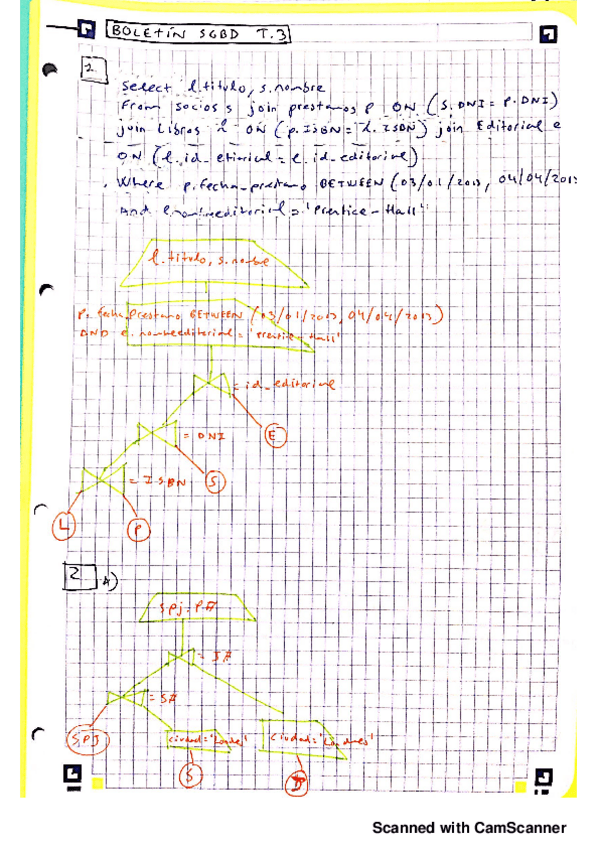 BOLETÍN SGBD T.3
1
Select l.titulo, s.nombre
From socios s join prestamos p ON (s.DNI = p.DNI)
join Libros l ON (p.ISBN = l.ISBN) join Editorial e
ON (l.id_etirorial = e.id_editorial)
Where p.fecha_prestamo BETWEEN (03/01/2013, 04/04/2013
And e.nombreeditorial = 'Prentice-Hall'
l.titulo, s.nombre
p.fecha_prestamo BETWEEN (03/01/2013, 04/04/2013)
AND e.nombreeditorial = 'Prentice-Hall'
= id_editorial
E
= DNI
S
= ISBN
L P
2 A)
spj.P#
= J#
= S#
SPJ ciudad='Londres' ciudad='Londres'
S J
Scanned with CamScanner